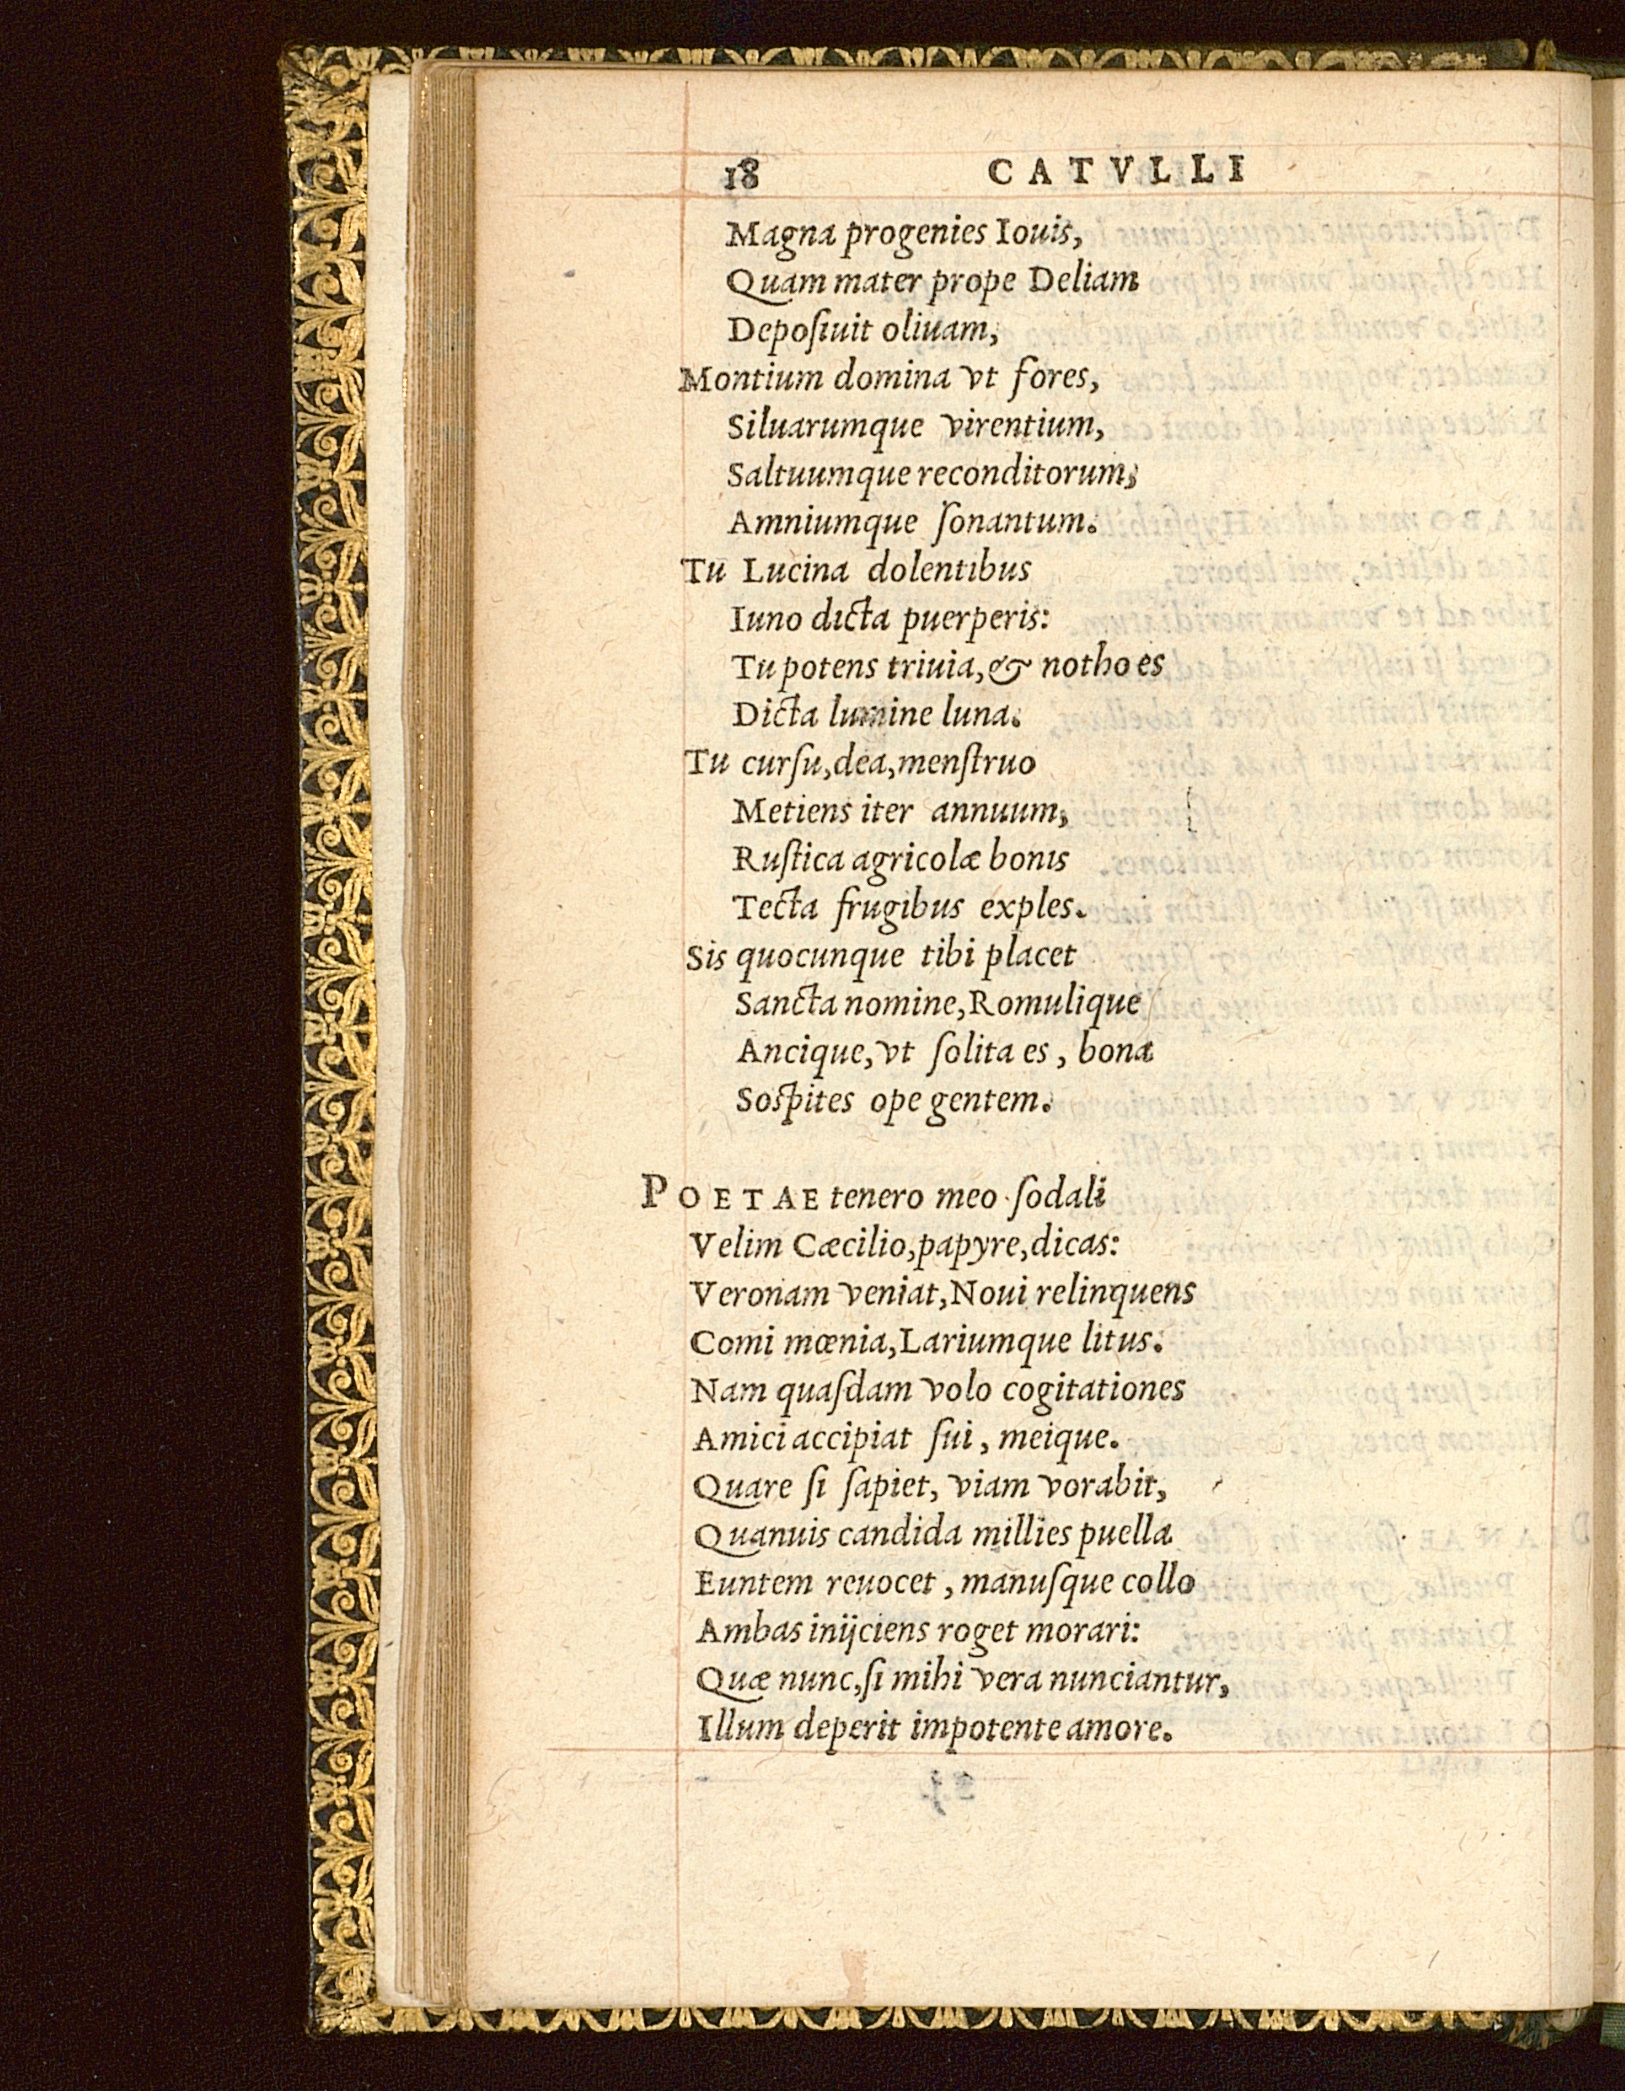 18 CATVLLI
Magna progenies Iouis,
Quam mater prope Deliam
Depoſiuit oliuam,
Montium domina vt fores,
Siluarumque virentium,
Saltuumque reconditorum,
Amniumque ſonantum.
Tu Lucina dolentibus
Iuno dicta puerperis:
Tu potens triuia, & notho es
Dicta lumine luna.
Tu curſu, dea, menſtruo
Metiens iter annuum,
Ruſtica agricolæ bonis
Tecta frugibus exples.
Sis quocunque tibi placet
Sancta nomine, Romulique
Ancique, vt ſolita es, bona
Soſpites ope gentem.
POETAE tenero meo ſodali
Velim Cæcilio, papyre, dicas:
Veronam veniat, Noui relinquens
Comi mœnia, Lariumque litus.
Nam quaſdam volo cogitationes
Amici accipiat ſui, meique.
Quare ſi ſapiet, viam vorabit,
Quanuis candida millies puella
Euntem reuocet, manuſque collo
Ambas inijciens roget morari:
Quæ nunc, ſi mihi vera nunciantur,
Illum deperit impotente amore.